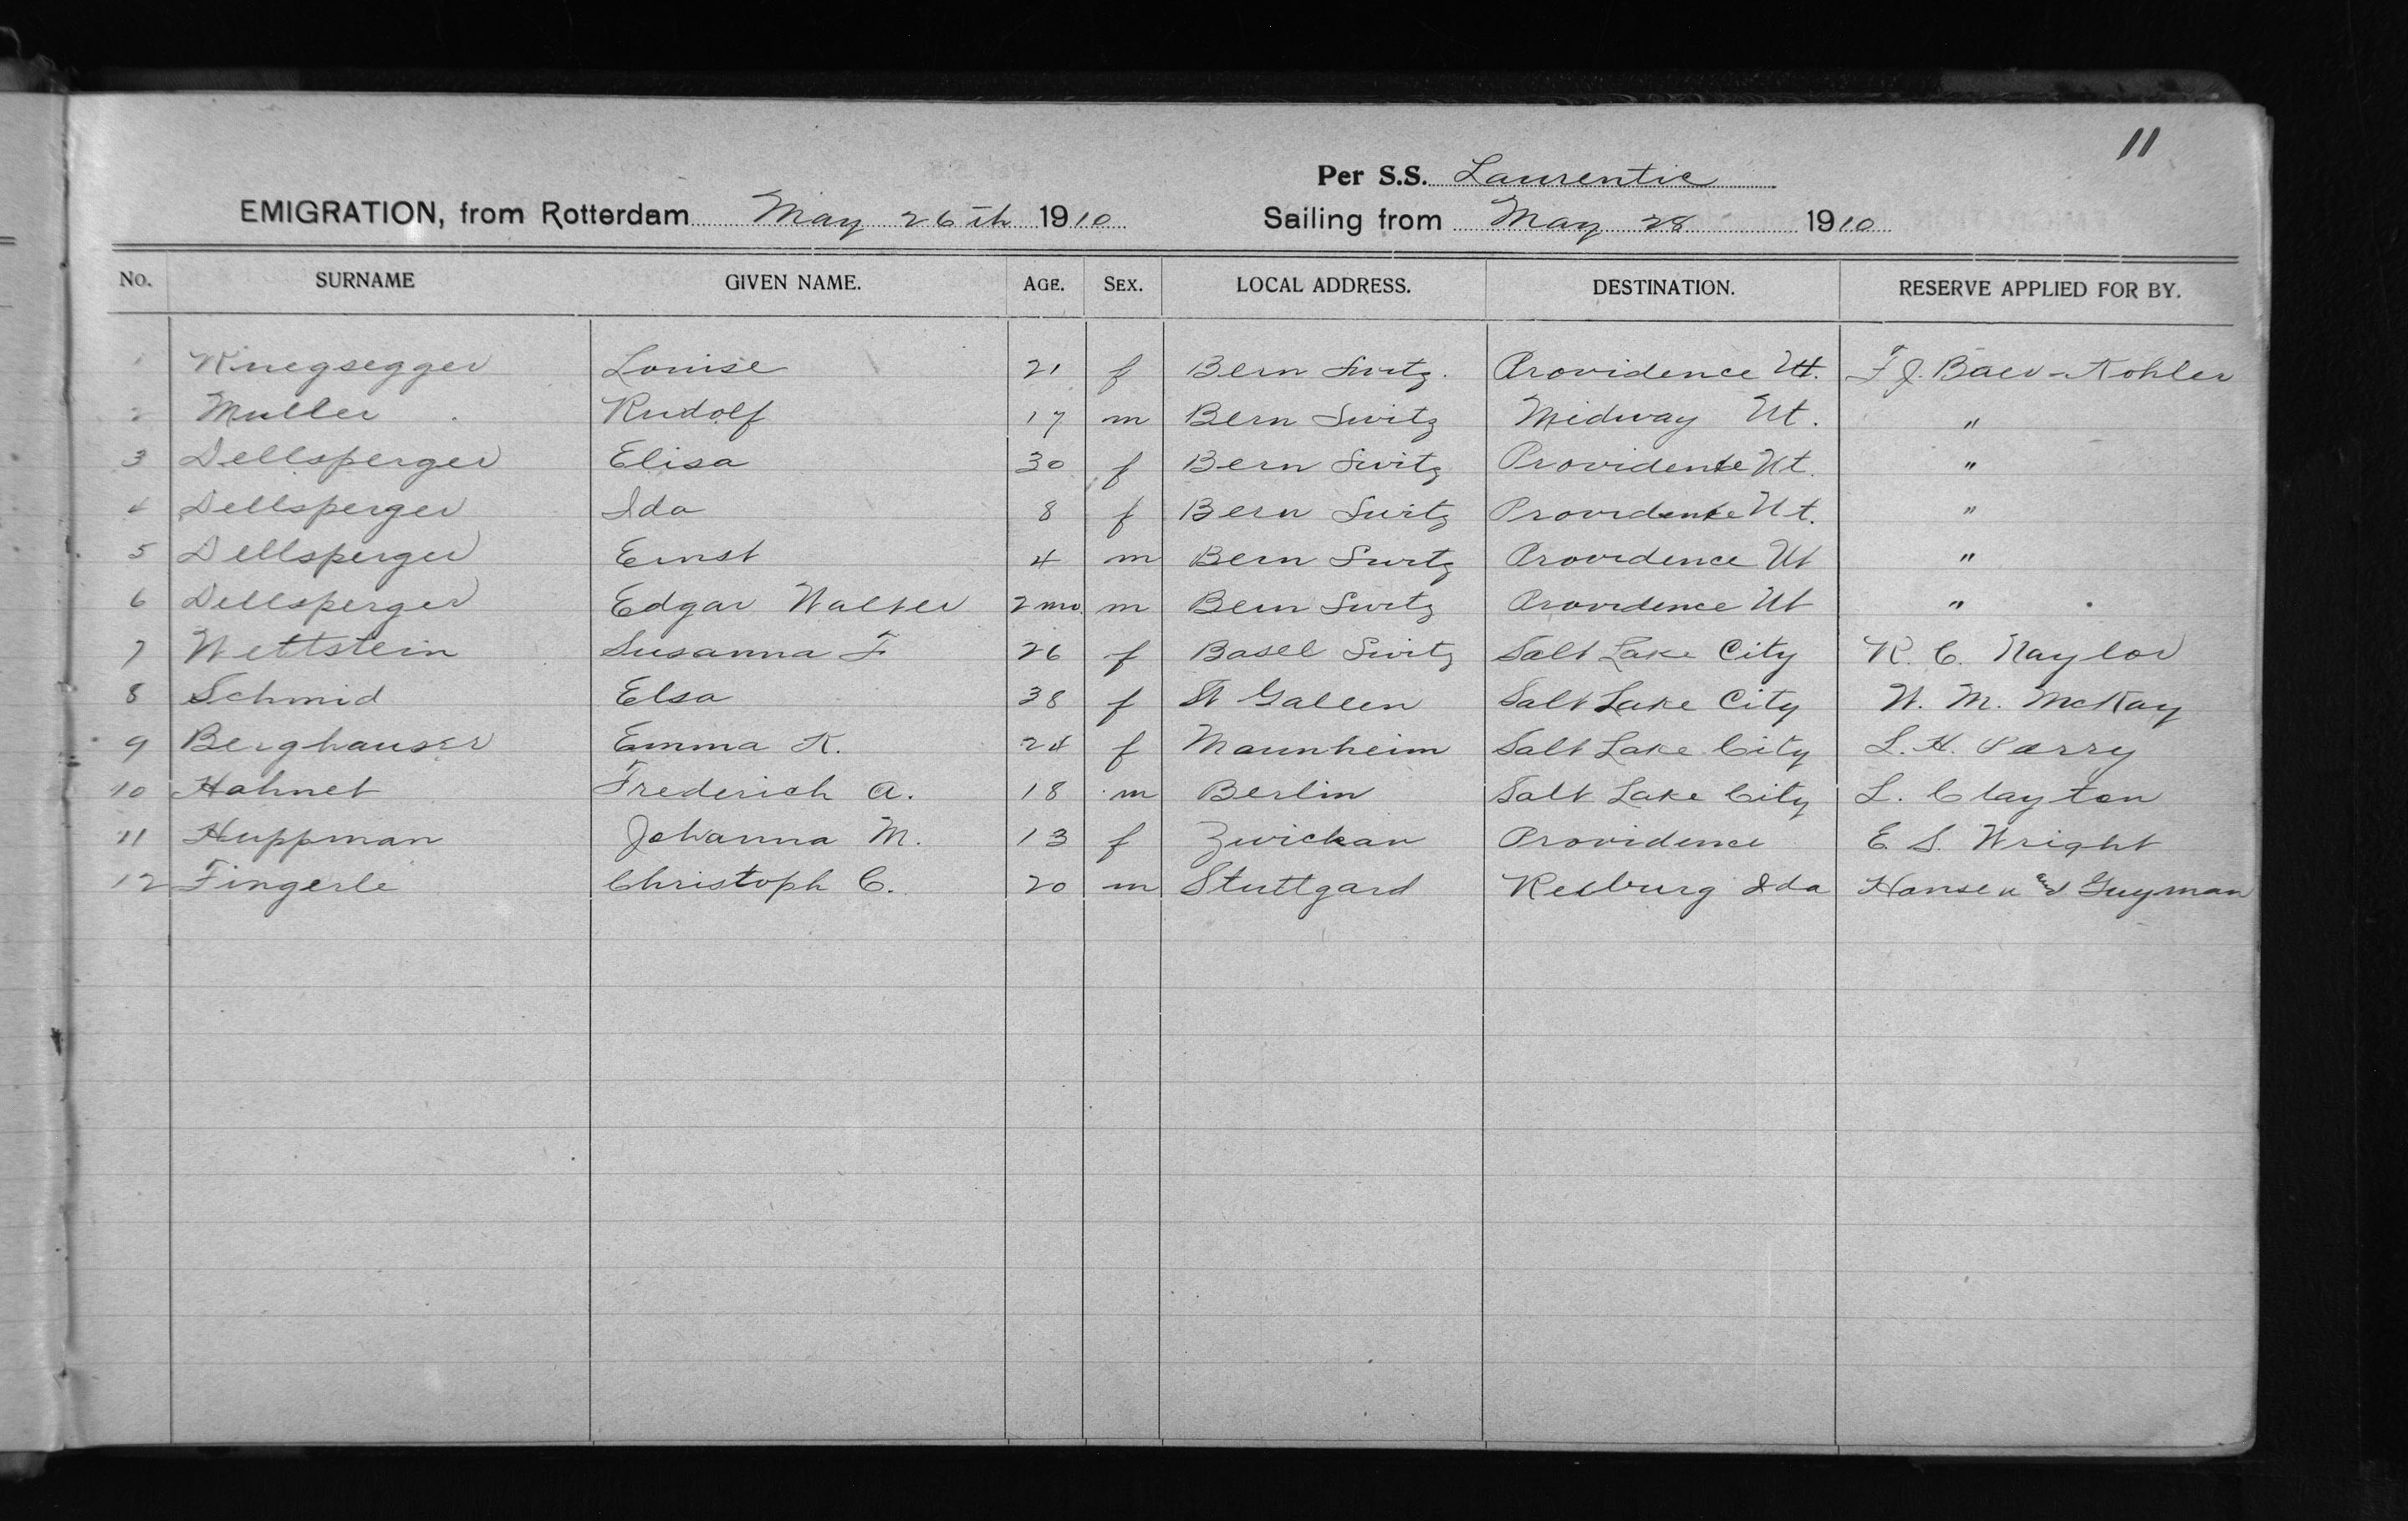 11
Per S.S. Laurentic
EMIGRATION, from Rotterdam May 26th 1910 Sailing from May 28 1910
No. SURNAME GIVEN NAME. AGE. SEX. LOCAL ADDRESS. DESTINATION. RESERVE APPLIED FOR BY.
1 Louise 21 f Bern Switz. Providence Ut. F J. Baer-Kohler
2 Muller Rudolf 17 m Bern Switz Midway Ut. "
3 Dellsperger Elisa 30 f Bern Switz Providence Ut. "
4 Dellsperger Ida 8 f Bern Switz Providence Ut. "
5 Dellsperger Ernst 4 m Bern Switz Providence Ut "
6 Dellsperger Edgar Walter 2 mo. m Bern Switz Providence Ut "
7 Wettstein Susanna F 26 f Basel Switz Salt Lake City R. C. Naylor
8 Schmid Elsa 38 f St Gallen Salt Lake City W. M. McKay
9 Berghauser Emma K. 24 f Mannheim Salt Lake City L. H. Parry
10 Hahnel Frederich A. 18 m Berlin Salt Lake City L. Clayton
11 Huppman Johanna M. 13 f Zwickau Providence E. S. Wright
12 Fingerle Christoph C. 20 m Stuttgard Rexburg Ida Hansen and Guyman